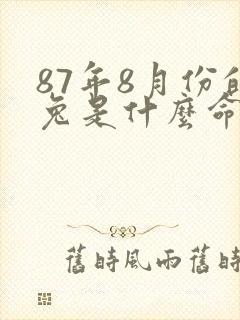 87年8月份
兔是什麼命
舊時風雨舊時